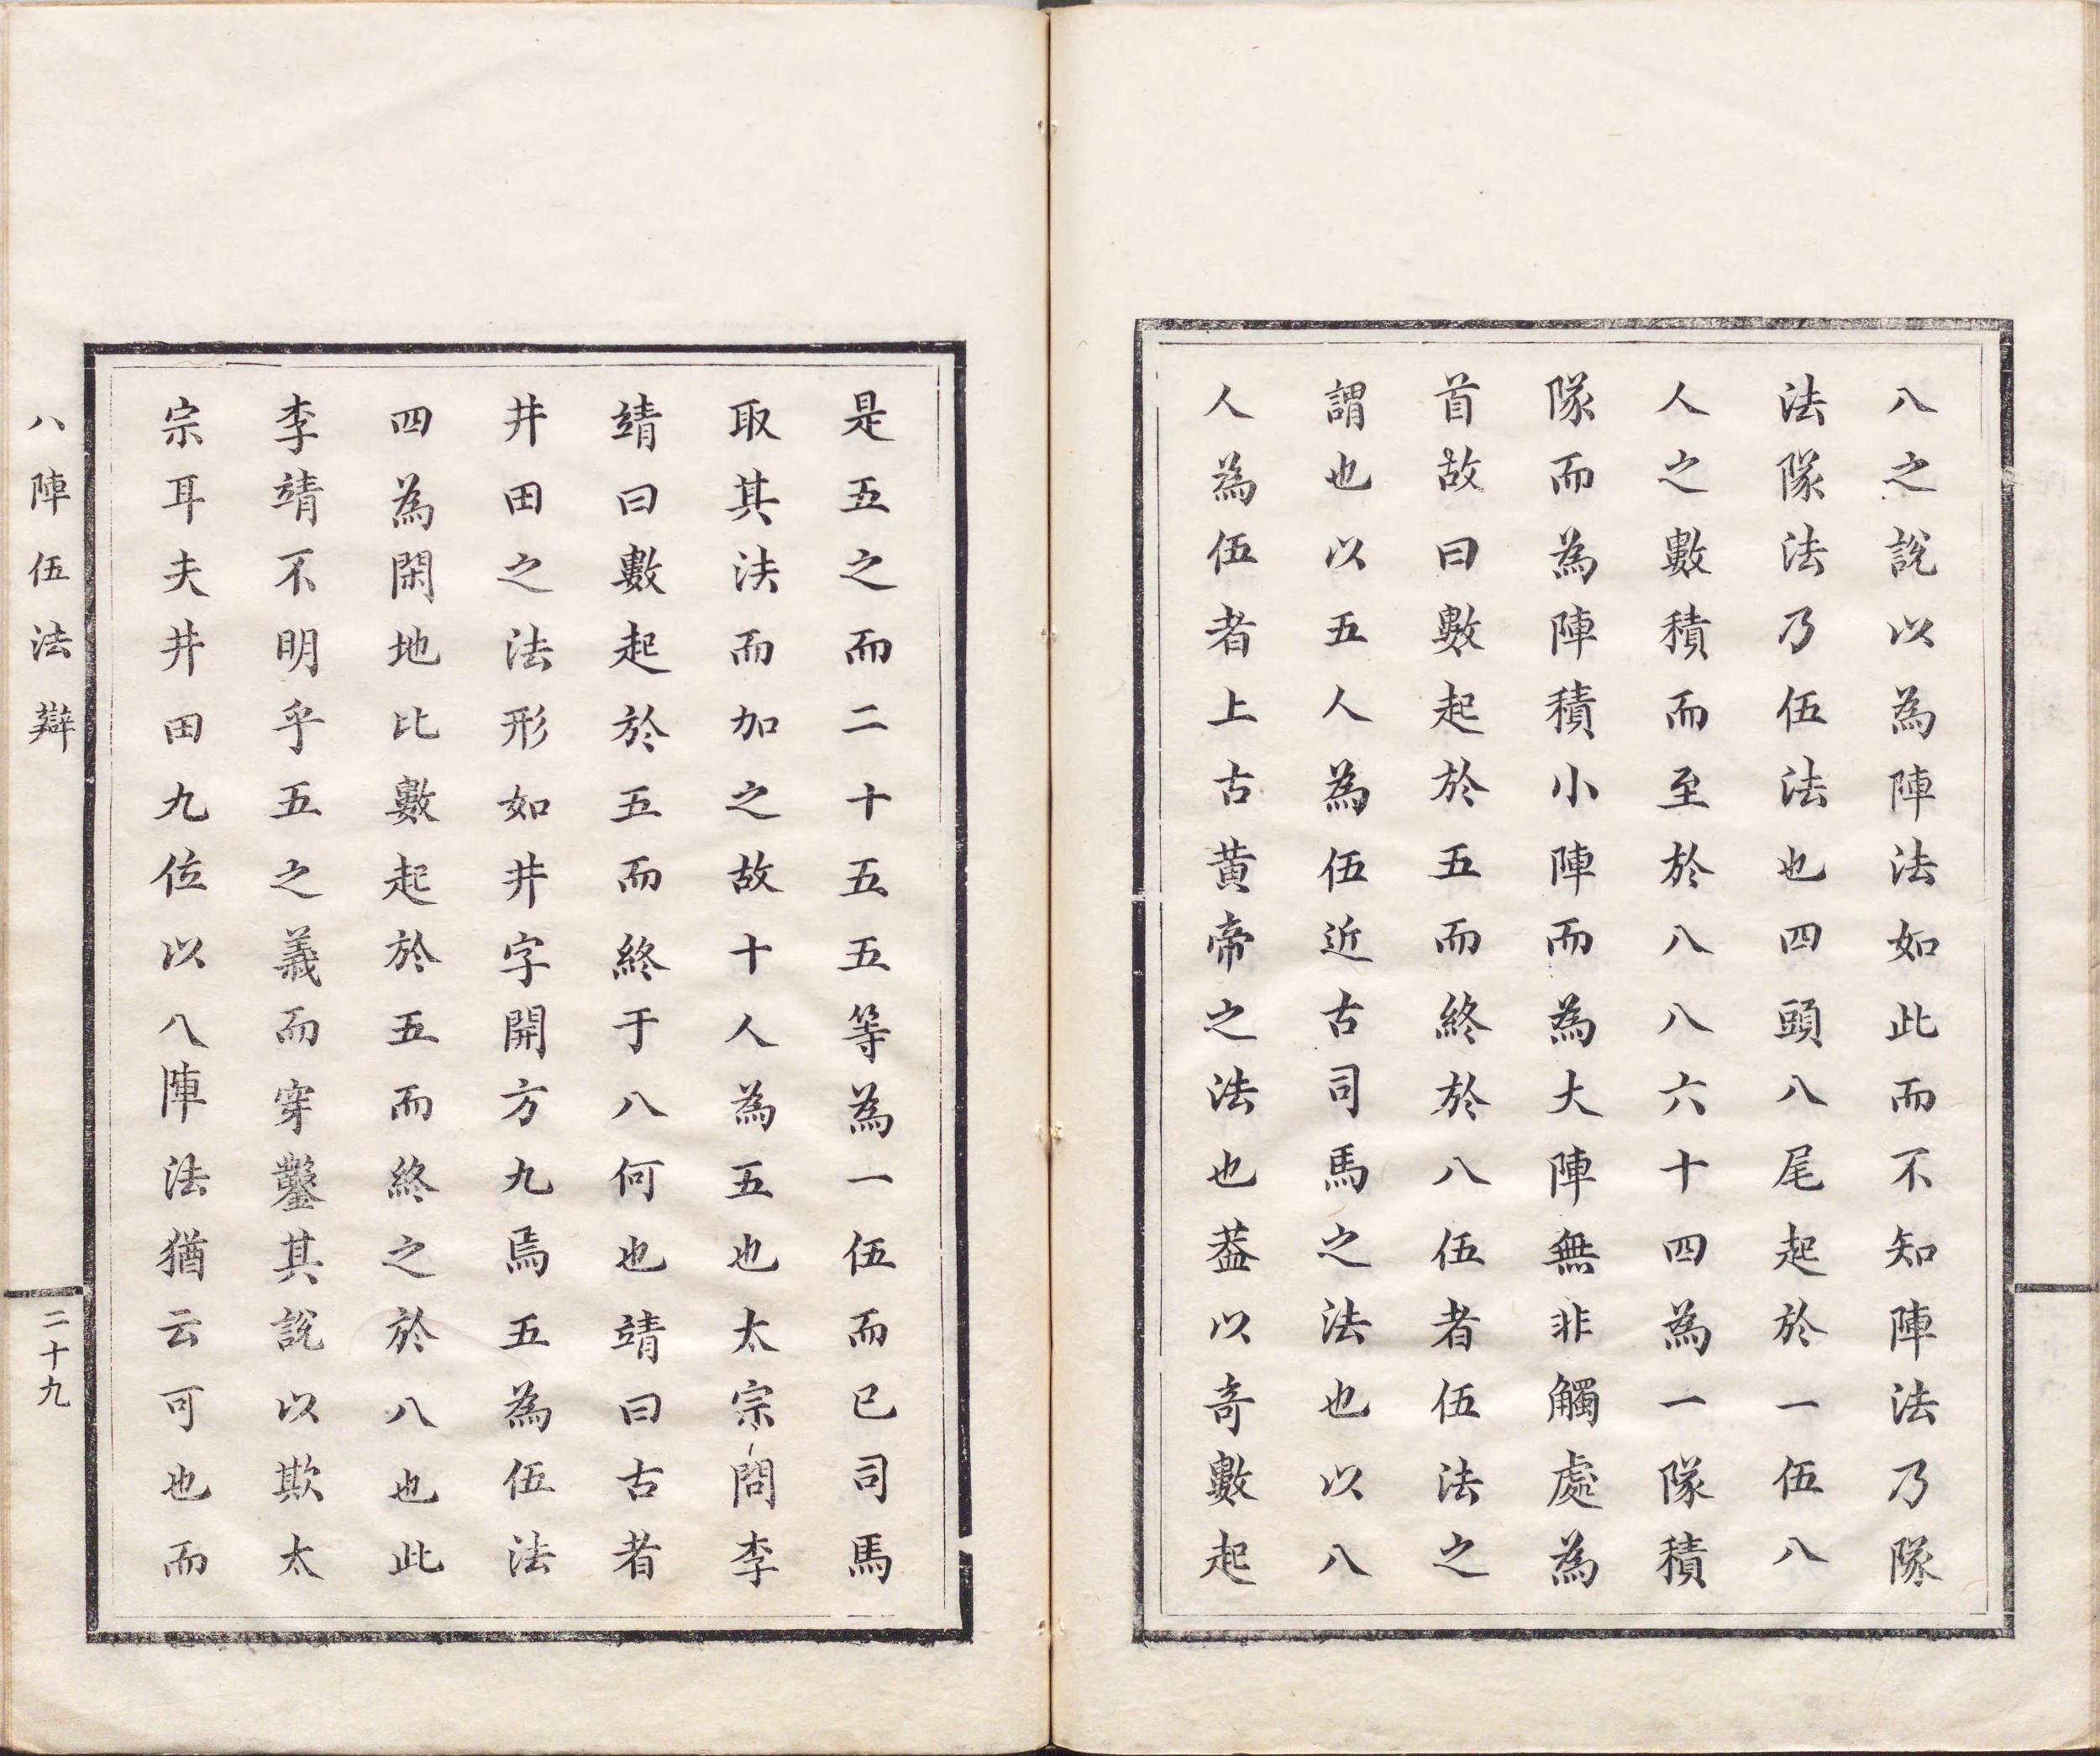 八之說以為陣法如此而不知陣法乃隊
法隊法乃伍法也四頭八尾起於一伍八
人之數積而至於八八六十四為一隊積
隊而為陣積小陣而為大陣無非觸處為
首故曰數起於五而終於八伍者伍法之
謂也以五人為伍近古司馬之法也以八
人為伍者上古黃帝之法也蓋以奇數起
是五之而二十五五等為一伍而已司馬
取其法而加之故十人為五也太宗問李
靖曰數起於五而終于八何也靖曰古者
井田之法形如井字開方九焉五為伍法
四為閑地比數起於五而終之於八也此
李靖不明乎五之義而穿鑿其說以欺太
宗耳夫井田九位以八陣法猶云可也而
八陣伍法辯
二十九